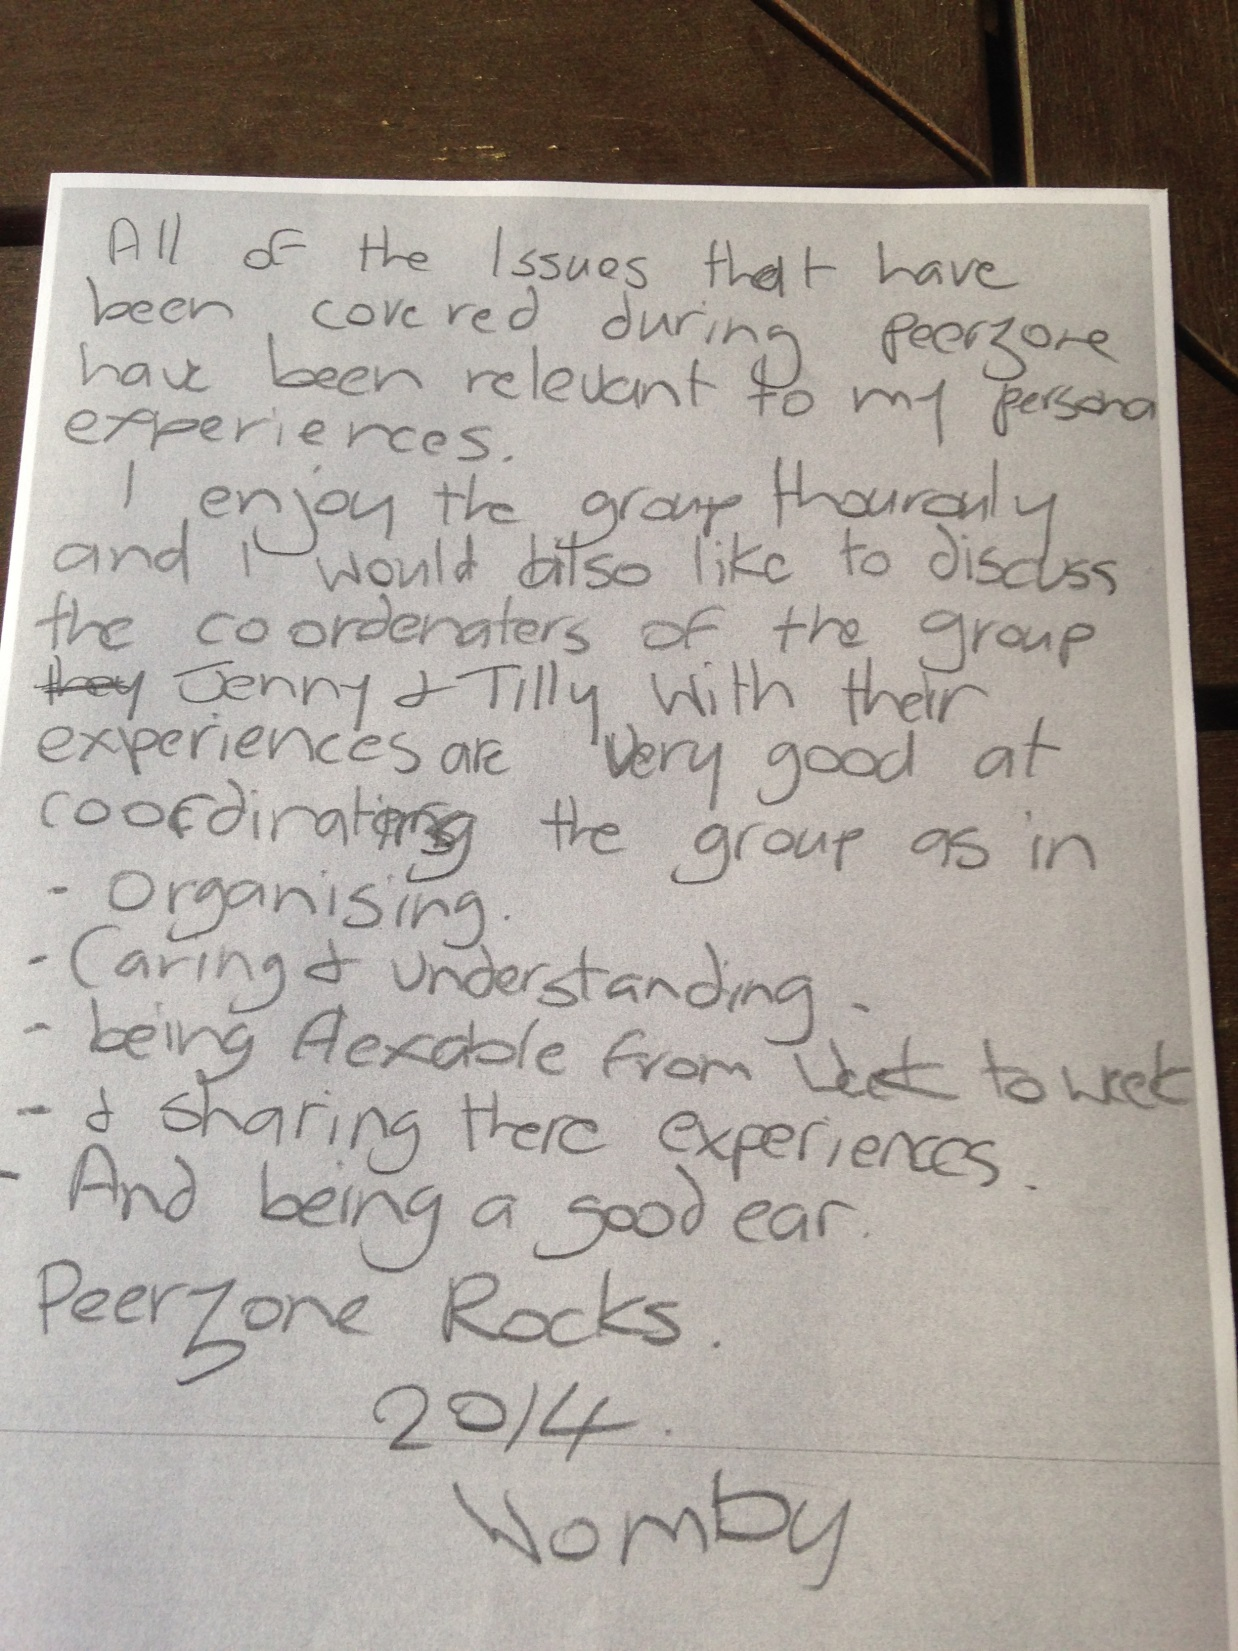 All of the Issues that have
been covered during peerzone
have been relevant to my persona
experiences.
I enjoy the group thourouly
and I would also like to discuss
the coordenaters of the group
they Jenny & Tilly with their
experiences are very good at
coordinating the group as in
- Organising.
- Caring & understanding.
- being flexable from week to week
- & sharing there experiences.
- And being a good ear.
Peerzone Rocks.
2014.
Womby